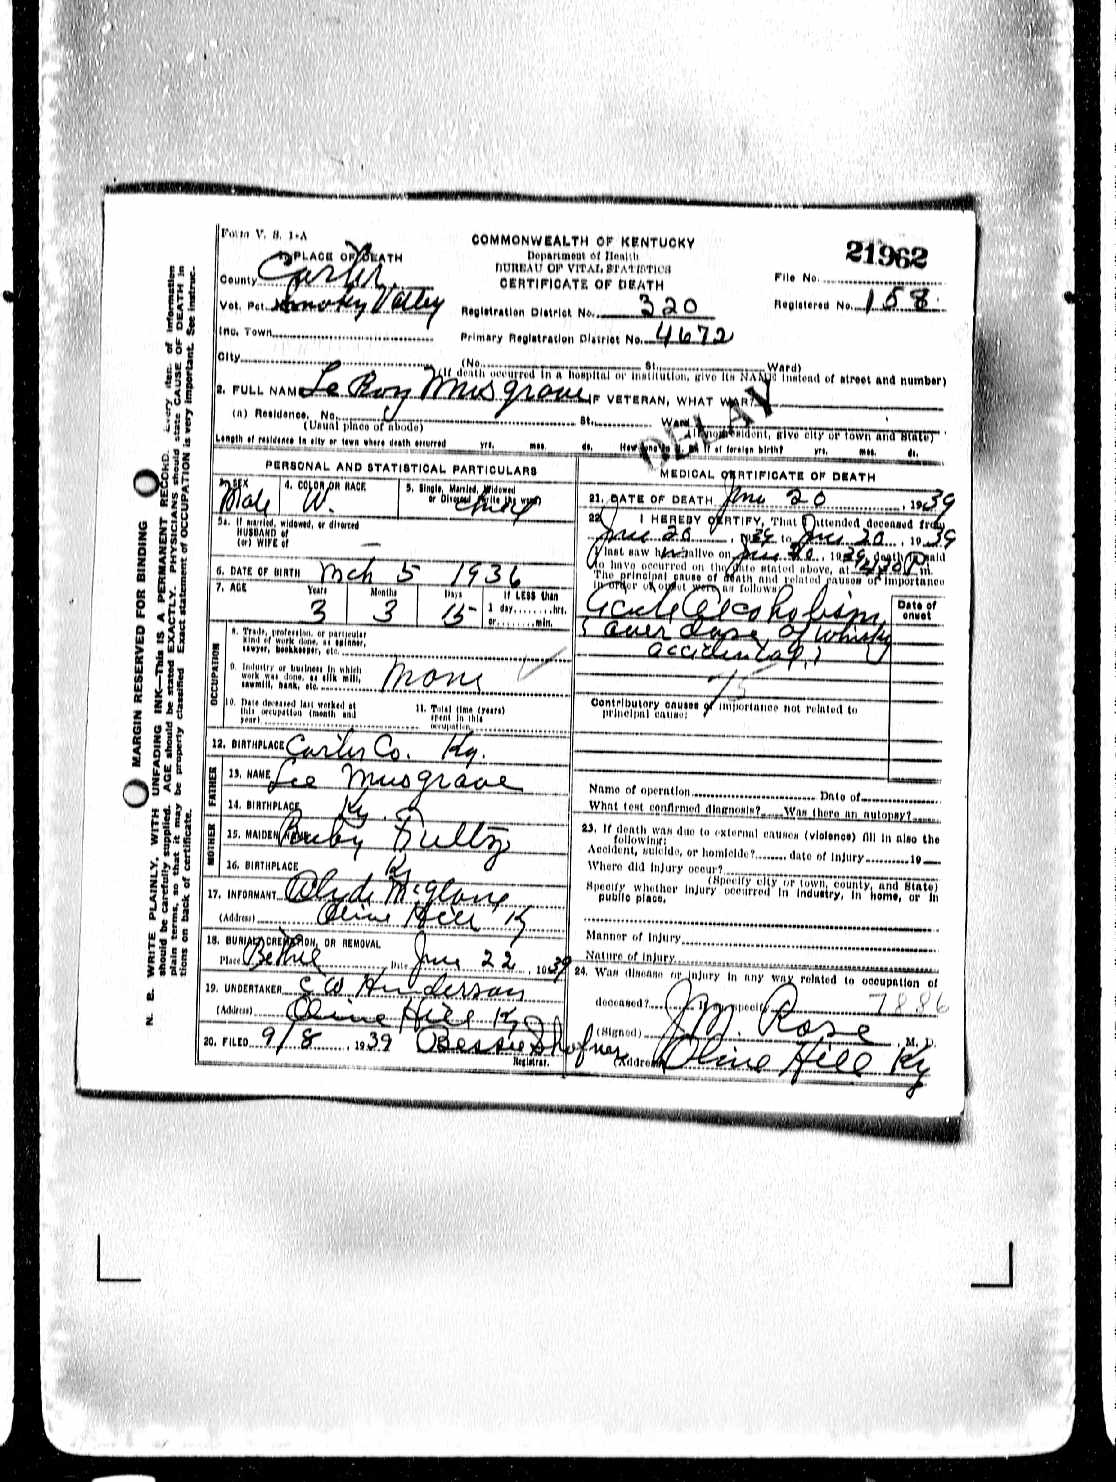 Form V. S. 1-A
COMMONWEALTH OF KENTUCKY
Department of Health
BUREAU OF VITAL STATISTICS
CERTIFICATE OF DEATH
21962
1. PLACE OF DEATH
County Carter
Vot. Pct. Smoky Valley
Inc. Town
City
File No.
Registered No. 158
Registration District No. 320
Primary Registration District No. 4672
(No. St. Ward)
(If death occurred in a hospital or institution, give its NAME instead of street and number)
2. FULL NAME Le Roy Musgrave IF VETERAN, WHAT WAR?
DELAY
(a) Residence. No. St. Ward
(Usual place of abode) (If nonresident, give city or town and State)
Length of residence in city or town where death occurred yrs. mos. ds. How long in U. S. if of foreign birth? yrs. mos. ds.
PERSONAL AND STATISTICAL PARTICULARS
3. SEX Male
4. COLOR OR RACE W.
5. Single, Married, Widowed
or Divorced (write the word) Child
5a. If married, widowed, or divorced
HUSBAND of
(or) WIFE of —
6. DATE OF BIRTH Mch 5 1936
7. AGE Years Months Days If LESS than
3 3 15 1 day, ........hrs.
or........min.
OCCUPATION
8. Trade, profession, or particular
kind of work done, as spinner,
sawyer, bookkeeper, etc.
9. Industry or business in which
work was done, as silk mill,
sawmill, bank, etc. None
10. Date deceased last worked at
this occupation (month and
year)
11. Total time (years)
spent in this
occupation
12. BIRTHPLACE Carter Co. Ky.
FATHER
13. NAME Lee Musgrave
14. BIRTHPLACE Ky.
MOTHER
15. MAIDEN NAME Ruby Fultz
16. BIRTHPLACE Ky
17. INFORMANT Clyde McGlone
(Address) Olive Hill Ky
18. BURIAL, CREMATION, OR REMOVAL
Place Bethel Date June 22, 1939
19. UNDERTAKER C W Henderson
(Address) Olive Hill Ky
20. FILED 9/8, 1939 Bessie Shafner
Registrar.
MEDICAL CERTIFICATE OF DEATH
21. DATE OF DEATH June 20, 1939
22. I HEREBY CERTIFY, That I attended deceased from
June 20, 1939 to June 20, 1939
I last saw him alive on June 20, 1939, death is said
to have occurred on the date stated above, at P m.
The principal cause of death and related causes of importance
in order of onset were as follows:
Date of
onset
Acute Alcoholism
(over dose of whisky
accidental)
75
Contributory causes of importance not related to
principal cause:
Name of operation Date of
What test confirmed diagnosis? Was there an autopsy?
23. If death was due to external causes (violence) fill in also the
following:
Accident, suicide, or homicide? date of injury 19
Where did injury occur?
(Specify city or town, county, and State)
Specify whether injury occurred in industry, in home, or in
public place.
Manner of injury
Nature of injury
24. Was disease or injury in any way related to occupation of
deceased? If so, specify
7886
(Signed) J. M. Rose, M. D.
(Address) Olive Hill Ky
MARGIN RESERVED FOR BINDING
N. B. WRITE PLAINLY, WITH UNFADING INK—THIS IS A PERMANENT RECORD. Every item of information
should be carefully supplied. AGE should be stated EXACTLY. PHYSICIANS should state CAUSE OF DEATH in
plain terms, so that it may be properly classified. Exact statement of OCCUPATION is very important. See instruc-
tions on back of certificate.